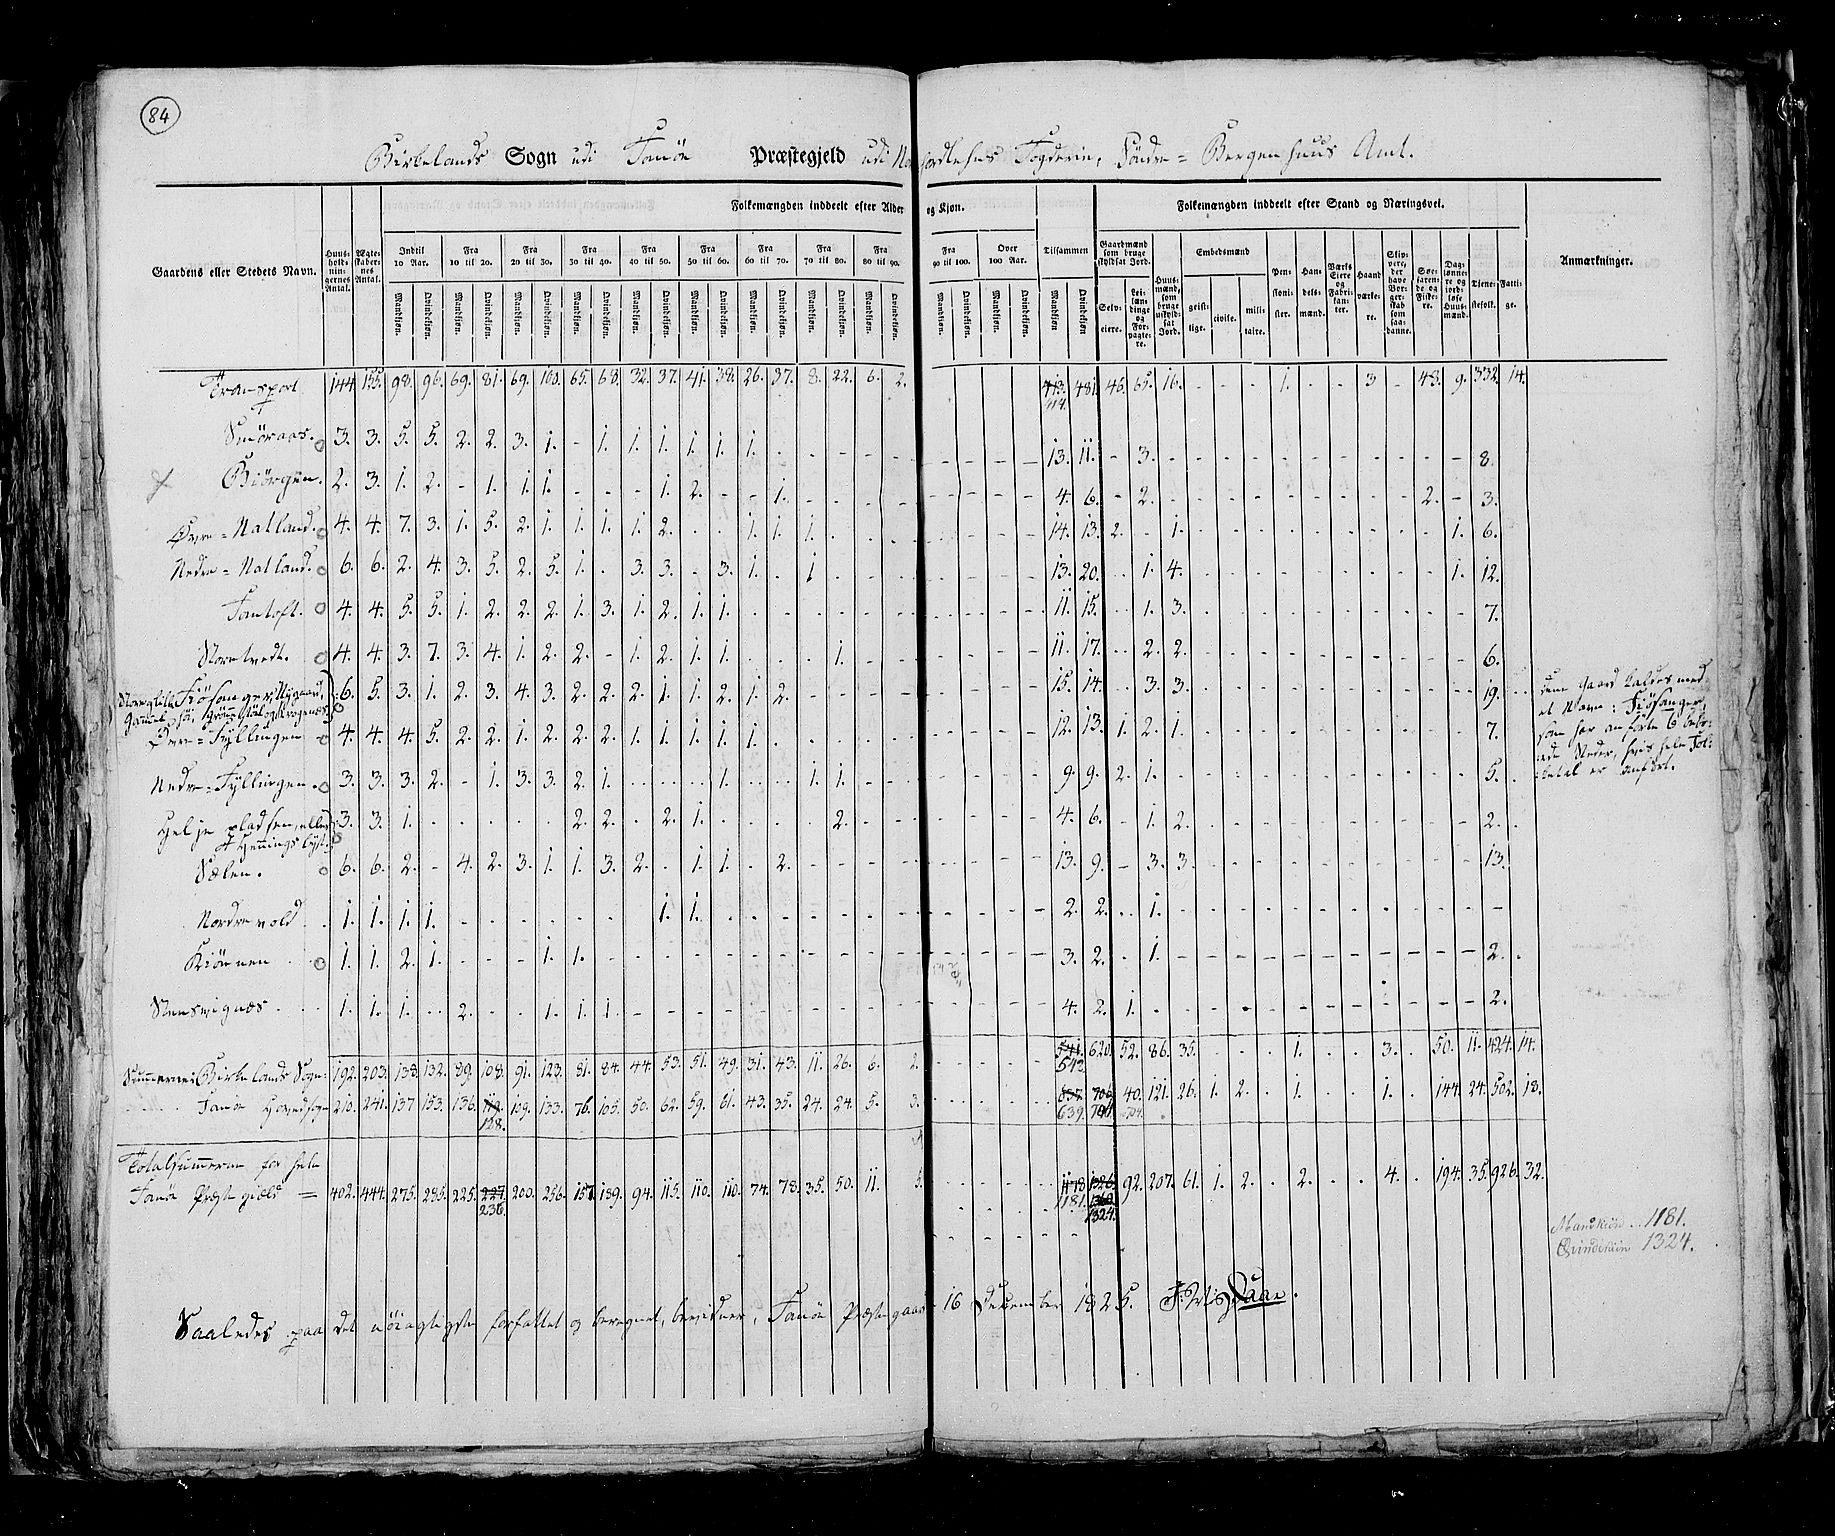 84
Birkelands Sogn udi Fanøe Præstegjeld udi Nordlehns Fogderie, Søndre = Bergenhuus Amt.
Gaardens eller Stedets Navn. Huusholdningernes Antal. Ægteskabernes Antal. Folkemængden inddeelt efter Alder og Kjøn. Tilsammen Folkemængden inddeelt efter Stand og Næringsvei. Anmærkninger.
Indtil 10 Aar. Fra 10 til 20. Fra 20 til 30. Fra 30 til 40. Fra 40 til 50. Fra 50 til 60. Fra 60 til 70. Fra 70 til 80. Fra 80 til 90. Fra 90 til 100. Over 100 Aar.
Mandkjøn. Qvindekjøn.
Gaardmænd som bruge skyldsat Jord. Selveiere. Leilændinge og Forpagtere. Huusmænd, som bruge uskyldsat Jord. Embedsmænd geistlige. civile. militaire. Pensionister. Handelsmænd. Værks Eiere og Fabrikanter. Haandværkere. Skippere, der have Borgerskab som saadanne. Søefarende og Fiskere. Daglønnere og jordløse Huusmænd. Tjenestefolk. Fattige.
Transport 144. 155. 98. 96. 69. 81. 69. 100. 65. 68. 32. 37. 41. 38. 26. 37. 8. 22. 6. 2. 413. 481. 46. 65. 16. - - - 1. - - 3 - 43. 9. 332. 14.
414.
Smøraas. 3. 3. 5. 5. 2. 2. 3. 1. - 1. 1. 1. 1. 1. 1. 13. 11. - 3. 8.
Biørgen. 2. 3. 1. 2. - 1. 1. 1. - - - 1. 2. - - 1. 4. 6. - 2. 2. - 3.
Øvre = Natland. 4. 4. 7. 3. 1. 5. 2. 1. 1. 1. 1. 2. - - 1. 1. 1. 14. 13. 2. - 1. 1. 6.
Nedre = Natland. 6. 6. 2. 4. 3. 5. 2. 5. 1. - 3. 3. - 3. 1. - 1 13. 20. - 1. 4. 1. 12.
Fantoft. 4. 4. 5. 5. 1. 2. 2. 2. 1. 3. 1. 2. 1. 1. 11. 15. - 1. 3. 7.
Storetvedt. 4. 4. 3. 7. 3. 4. 1. 2. 2. - 1. 2. 1. 1. - - - 1. 11. 17. - 2. 2. 6.
6. 5. 3. 1. 2. 3. 4. 3. 2. 2. 2. 1. 1. 2. 1. 2. 15. 14. - 3. 3. 19.
Øvre = Fyllingen 4. 4. 4. 5. 2. 2. 1. 2. 2. 2. 1. 1. 1. 1. 1. 12. 13. 1. 2. 1. 7.
Nedre = Fyllingen. 3. 3. 3. 2. - 1. 3. 3. 2. 1. - - - 1. - - 1. 1. 9. 9. 2. 1. 5.
Helje pladsen, eller 3. 3. 1. 2. 2. - 2. 1. 2. 4. 6. - 1. 2. 2.
Hennings lyst.
Sælen. 6. 6. 2. - 4. 2. 3. 1. 1. 3. 2. - 1. 1. - 2. 13. 9. - 3. 3. 13.
Nordre vold 1. 1. 1. 1. 1. 1. 2. 2. - 1.
Kiønnen 1. 1. 2. 1. - - - 1. 1. 3. 2. - 1. 2.
Stensvignæs 1. 1. 1. - 2. - - 1. 1. 1. 4. 2. 1. 2.
Summerne i Birkelands Sogn 192. 203. 138. 132. 89. 108. 91. 123. 81. 84. 44. 53. 51. 49. 31. 43. 11. 26. 6. 2. 541. 620. 52. 86. 35. 1. 3. 50. 11. 424. 14.
542
Fanøe Hovedsogn 210. 241. 137 153. 136. 119. 109. 133. 76. 105. 50. 62. 59. 61. 43. 35. 24. 24. 5. 3. 637. 706. 40. 121. 26. 1. 2. - 1. 1. 144. 24. 502. 18.
128. 639. 704.
Totalsummerne for hele
Fanøe Præstegjæld = 402. 444. 275. 285. 225. 227. 200. 256. 157. 189. 94. 115. 110. 110. 74. 78. 35. 50. 11. 5. 1178 1326. 92. 207. 61. 1. 2. 2. 4. 194. 35. 926. 32.
236. 1181. 1324.
denne Gaard kaldes med
et Navn: Fiøsanger,
Mandkiøn 1181.
Qvindekiøn 1324.
Saaledes paa det nøiagtigste forfattet og beregnet, bevidner, Fanøe Præstegaard 16 December 1825.